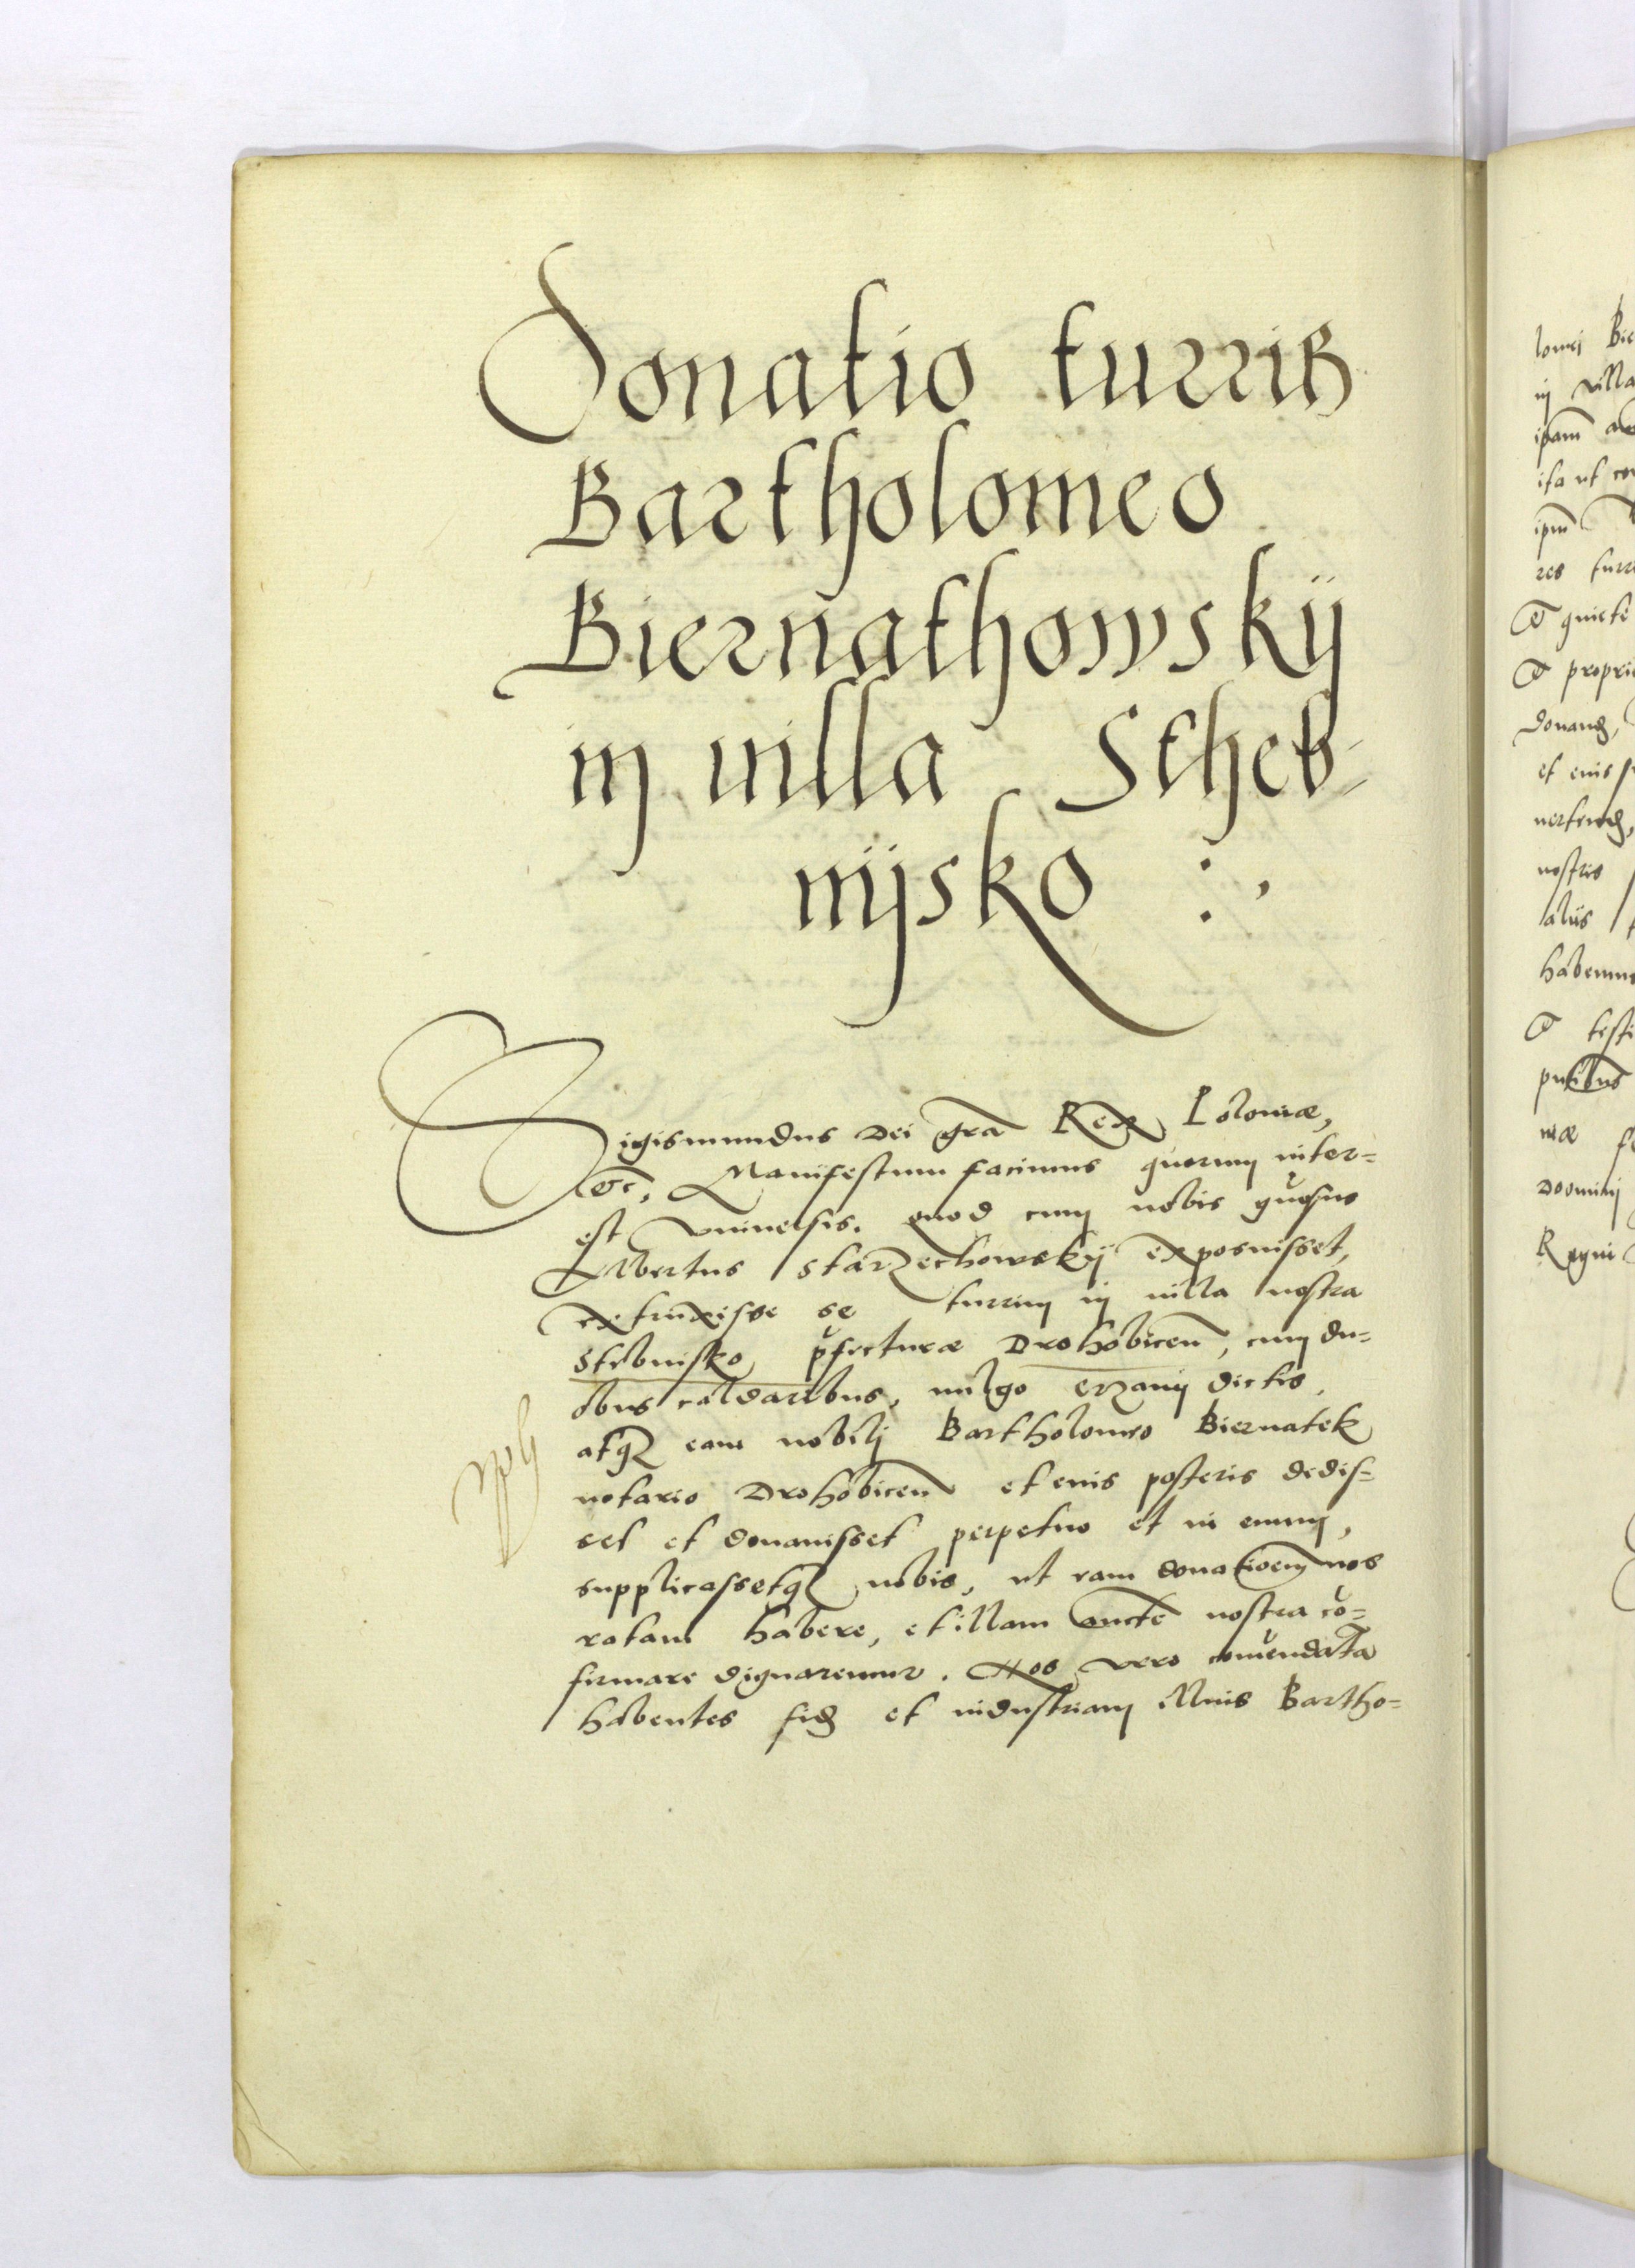 Donatio turris
Bartholomeo
Biernathowskÿ
in uilla Stheb-
nÿsko :,
Sigismundus Dei gra Rex Poloniæ,
etc, Manifestum facimus quorum inter=
est vniuersis. quod cum nobis gñosus
Albertus Starzechowskÿ exposuisset,
extruxisse se turrim in uilla nostra
Stebnisko pfecturæ Drohobicen, cum du=
obus caldaribus, uulgo czanÿ dictis,
atq3 eam nobili Bartholomeo Biernatek
notario Drohobicen et eius posteris dedis=
set et donauisset perpetuo et in euum,
supplicassetq3 nobis, ut eam donatioem nos
ratam habere, et illam aucte nostra cō=
firmare dignaremur. Nos vero comendatā
habentes fid et industriam illius Bartho=
lomei Bie
in villa
ipam
ita ut co
ipm
res turr
et quiete
et propri
donand,
et eius
uertend,
nostris
aliis
habemus
et testi
pntibus
niæ
Doomini
Regni